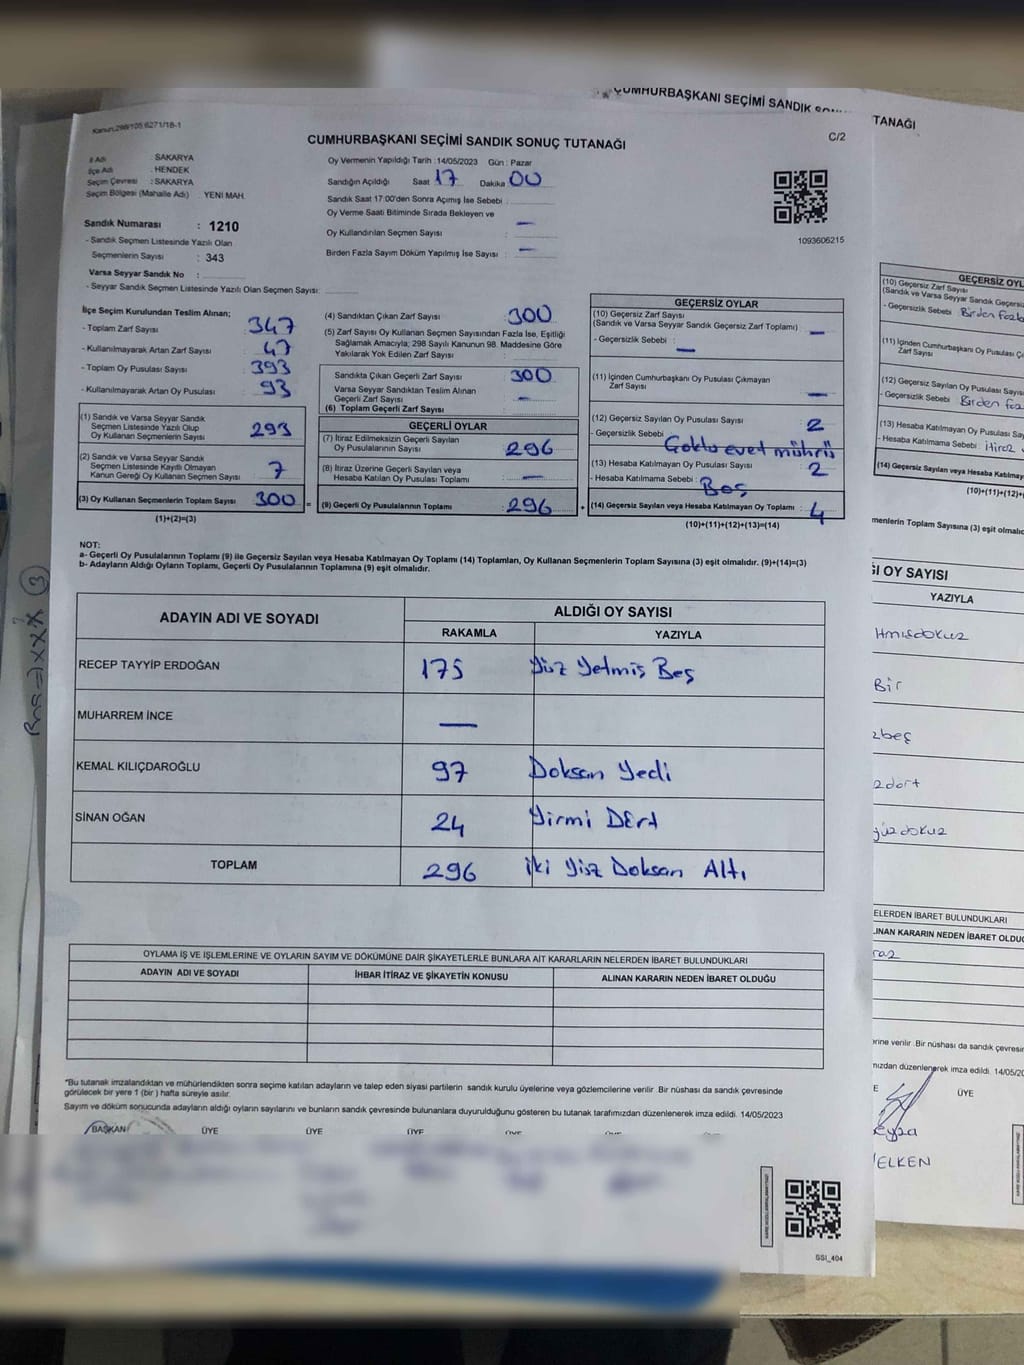 CUMHURBAŞKANI SEÇİMİ SANDIK
TANAĞI
Kanun:298/105 6271/18-1
CUMHURBAŞKANI SEÇİMİ SANDIK SONUÇ TUTANAĞI
C/2
İl Adı : SAKARYA
İlçe Adı : HENDEK
Seçim Çevresi : SAKARYA
Seçim Bölgesi (Mahalle Adı) : YENİ MAH.
Oy Vermenin Yapıldığı Tarih :14/05/2023 Gün : Pazar
Sandığın Açıldığı Saat 17 Dakika 00
Sandık Saat 17:00'den Sonra Açımış İse Sebebi :
Oy Verme Saati Bitiminde Sırada Bekleyen ve
Oy Kullandırılan Seçmen Sayısı : —
Birden Fazla Sayım Döküm Yapılmış İse Sayısı : —
1093606215
Sandık Numarası : 1210
- Sandık Seçmen Listesinde Yazılı Olan
Seçmenlerin Sayısı : 343
Varsa Seyyar Sandık No :
- Seyyar Sandık Seçmen Listesinde Yazılı Olan Seçmen Sayısı:
İlçe Seçim Kurulundan Teslim Alınan;
- Toplam Zarf Sayısı : 347
- Kullanılmayarak Artan Zarf Sayısı : 47
- Toplam Oy Pusulası Sayısı : 393
- Kullanılmayarak Artan Oy Pusulası : 93
(1) Sandık ve Varsa Seyyar Sandık
Seçmen Listesinde Yazılı Olup
Oy Kullanan Seçmenlerin Sayısı : 293
(2) Sandık ve Varsa Seyyar Sandık
Seçmen Listesinde Kayıtlı Olmayan
Kanun Gereği Oy Kullanan Seçmen Sayısı : 7
(3) Oy Kullanan Seçmenlerin Toplam Sayısı : 300 =
(1)+(2)=(3)
(4) Sandıktan Çıkan Zarf Sayısı : 300
(5) Zarf Sayısı Oy Kullanan Seçmen Sayısından Fazla İse, Eşitliği
Sağlamak Amacıyla; 298 Sayılı Kanunun 98. Maddesine Göre
Yakılarak Yok Edilen Zarf Sayısı :
Sandıkta Çıkan Geçerli Zarf Sayısı : 300
Varsa Seyyar Sandıktan Teslim Alınan
Geçerli Zarf Sayısı : —
(6) Toplam Geçerli Zarf Sayısı :
GEÇERLİ OYLAR
(7) İtiraz Edilmeksizin Geçerli Sayılan
Oy Pusulalarının Sayısı : 296
(8) İtiraz Üzerine Geçerli Sayılan veya
Hesaba Katılan Oy Pusulası Toplamı : —
(9) Geçerli Oy Pusulalarının Toplamı : 296 +
GEÇERSİZ OYLAR
(10) Geçersiz Zarf Sayısı
(Sandık ve Varsa Seyyar Sandık Geçersiz Zarf Toplamı) : —
- Geçersizlik Sebebi : —
(11) İçinden Cumhurbaşkanı Oy Pusulası Çıkmayan
Zarf Sayısı : —
(12) Geçersiz Sayılan Oy Pusulası Sayısı : 2
- Geçersizlik Sebebi : Çoklu evet mührü
(13) Hesaba Katılmayan Oy Pusulası Sayısı : 2
- Hesaba Katılmama Sebebi : Boş
(14) Geçersiz Sayılan veya Hesaba Katılmayan Oy Toplamı : 4
(10)+(11)+(12)+(13)=(14)
NOT:
a- Geçerli Oy Pusulalarının Toplamı (9) ile Geçersiz Sayılan veya Hesaba Katılmayan Oy Toplamı (14) Toplamları, Oy Kullanan Seçmenlerin Toplam Sayısına (3) eşit olmalıdır. (9)+(14)=(3)
b- Adayların Aldığı Oyların Toplamı, Geçerli Oy Pusulalarının Toplamına (9) eşit olmalıdır.
ADAYIN ADI VE SOYADI
ALDIĞI OY SAYISI
RAKAMLA YAZIYLA
RECEP TAYYİP ERDOĞAN 175 Yüz Yetmiş Beş
MUHARREM İNCE —
KEMAL KILIÇDAROĞLU 97 Doksan Yedi
SİNAN OĞAN 24 Yirmi Dört
TOPLAM 296 İki Yüz Doksan Altı
OYLAMA İŞ VE İŞLEMLERİNE VE OYLARIN SAYIM VE DÖKÜMÜNE DAİR ŞİKAYETLERLE BUNLARA AİT KARARLARIN NELERDEN İBARET BULUNDUKLARI
ADAYIN ADI VE SOYADI İHBAR İTİRAZ VE ŞİKAYETİN KONUSU ALINAN KARARIN NEDEN İBARET OLDUĞU
*Bu tutanak imzalandıktan ve mühürlendikten sonra seçime katılan adayların ve talep eden siyasi partilerin sandık kurulu üyelerine veya gözlemcilerine verilir. Bir nüshası da sandık çevresinde
görülecek bir yere 1 (bir) hafta süreyle asılır.
Sayım ve döküm sonucunda adayların aldığı oyların sayılarını ve bunların sandık çevresinde bulunanlara duyurulduğunu gösteren bu tutanak tarafımızdan düzenlenerek imza edildi. 14/05/2023
BAŞKAN ÜYE ÜYE ÜYE
SSI_404
GEÇERSİZ OYL
(10) Geçersiz Zarf Sayısı
(Sandık ve Varsa Seyyar Sandık Geçersiz
- Geçersizlik Sebebi : Birden Fazla
(11) İçinden Cumhurbaşkanı Oy Pusulası Ç
Zarf Sayısı
(12) Geçersiz Sayılan Oy Pusulası Sayısı
- Geçersizlik Sebebi : Birden faz
(13) Hesaba Katılmayan Oy Pusulası Sayısı
- Hesaba Katılmama Sebebi : itiraz
(14) Geçersiz Sayılan veya Hesaba Katılmayan
(10)+(11)+(12)+
menlerin Toplam Sayısına (3) eşit olmalıdı
ĞI OY SAYISI
YAZIYLA
tmışdokuz
Bir
zbeş
zdört
yüzdokuz
ELERDEN İBARET BULUNDUKLARI
LINAN KARARIN NEDEN İBARET OLDUĞ
raz
erine verilir. Bir nüshası da sandık çevresin
mızdan düzenlenerek imza edildi. 14/05/20
E ÜYE
eyza
ELKEN